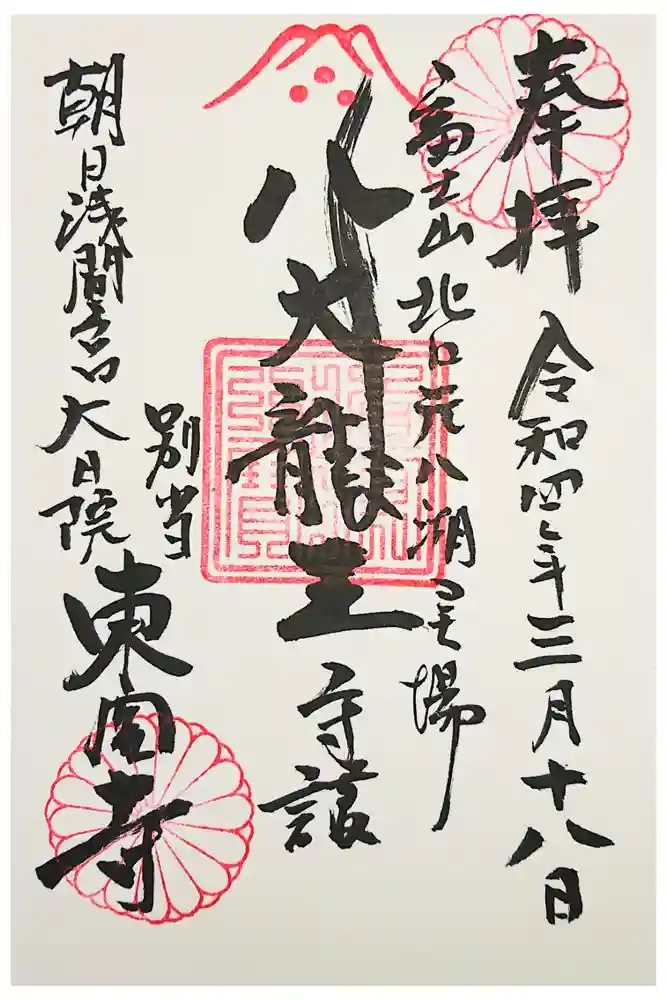 奉拝
令和四年三月十八日
富士山北口元八湖霊場
八大龍王
守護
別当
朝日浅間宮大日院
東圓寺